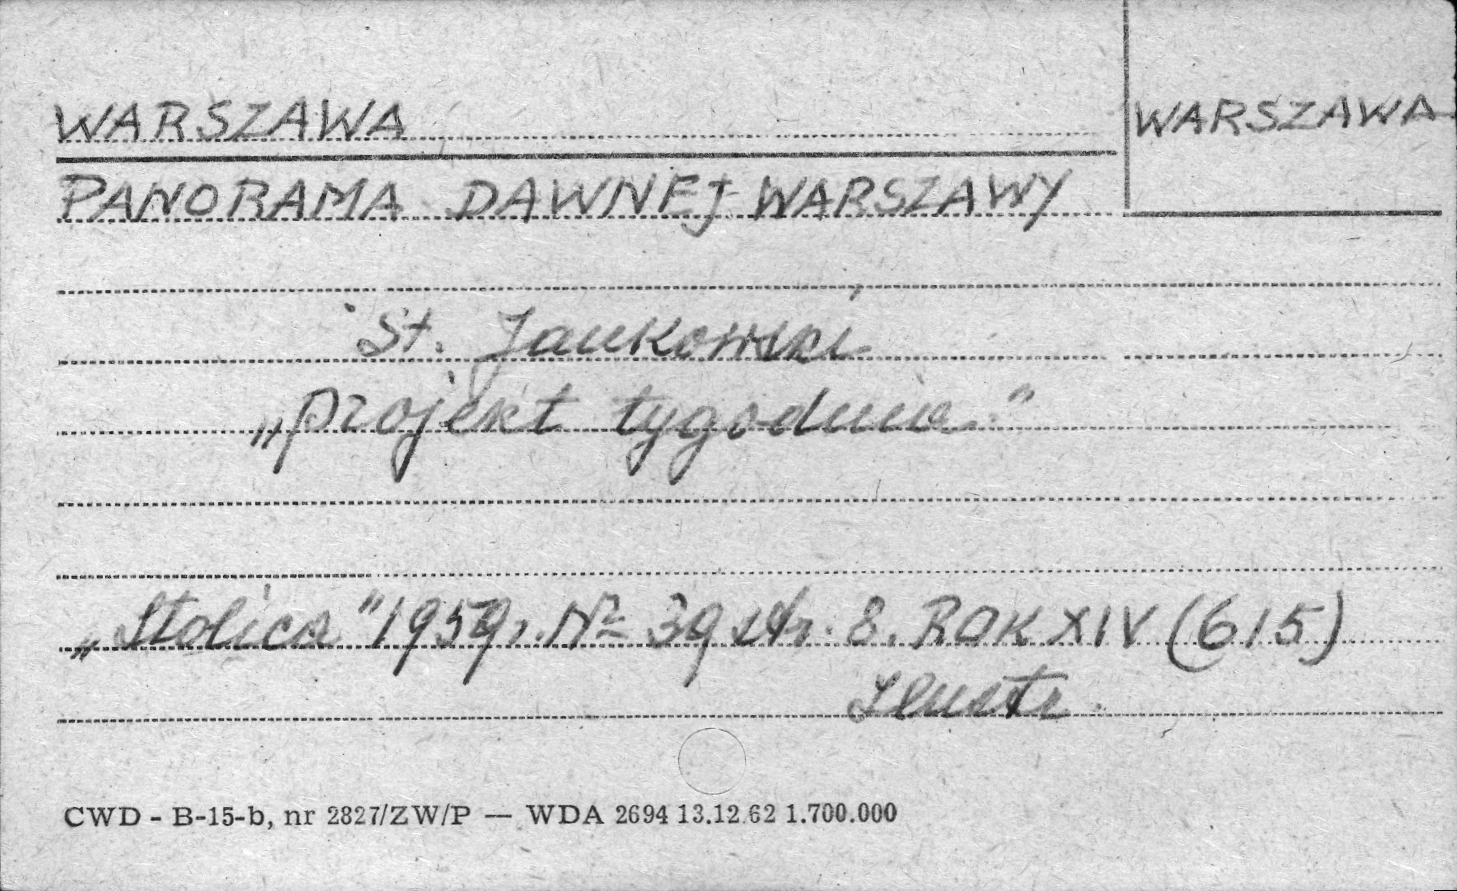 WARSZAWA
WARSZAWA
PANORAMA DAWNEJ WARSZAWY
St. Jankowski
„projekt tygodnia"
„Stolica" 1959 r. № 39 str. 8. ROK XIV (615)
Ilustr.
CWD - B-15-b, nr 2827/ZW/P — WDA 2694 13.12.62 1.700.000